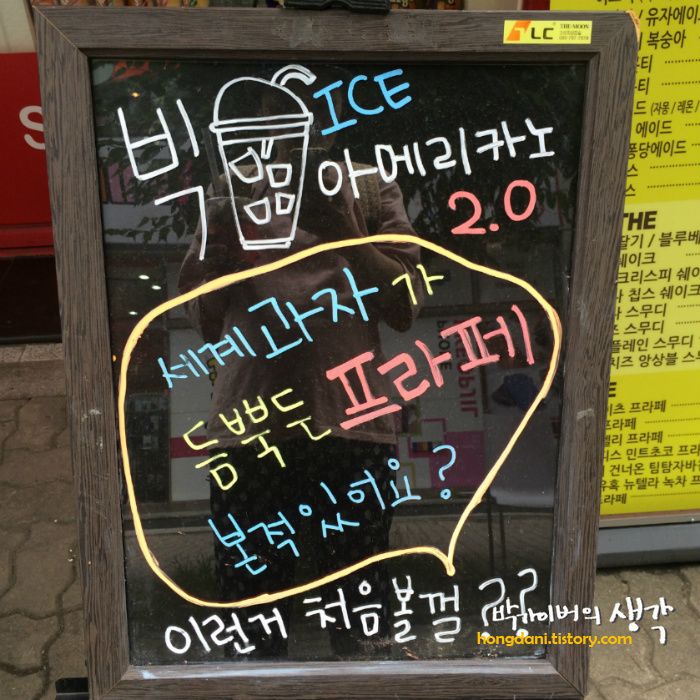 LC THE MOON
빅 ICE
아메리카노
2.0
세계과자가
듬뿍든 프라페
본적있어요?
이런거 처음볼껄 ??
박하이버의 생각
hongdani.tistory.com
S
/ 유자에이드
복숭아
티
티
드 (자몽 / 레몬 /
에이드
퐁당에이드
스
THE
딸기 / 블루베
쉐이크
크리스피 쉐이
칩스 쉐이크
스무디
스무디
플레인 스무디
치즈 앙상블 스
E
이츠 프라페
프라페
젤리 프라페
디스 민트초코 프라
건너온 팀탐자바
유혹 뉴텔라 녹차 프
라페